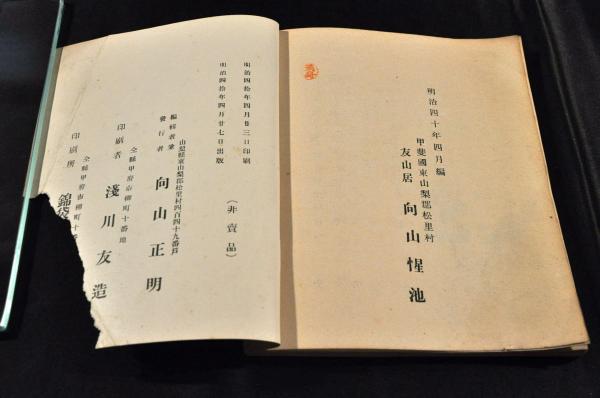 明治四十年四月編
甲斐國東山梨郡松里村
友山居 向山惺池
明治四拾年四月廿三日印刷
明治四拾年四月廿七日出版
(非賣品)
山梨縣東山梨郡松里村四百四十九番戸
編輯者兼
發行者 向山正明
仝縣甲府市柳町十番地
印刷者 淺川友造
仝縣甲府市柳町十番
印刷所 錦袋